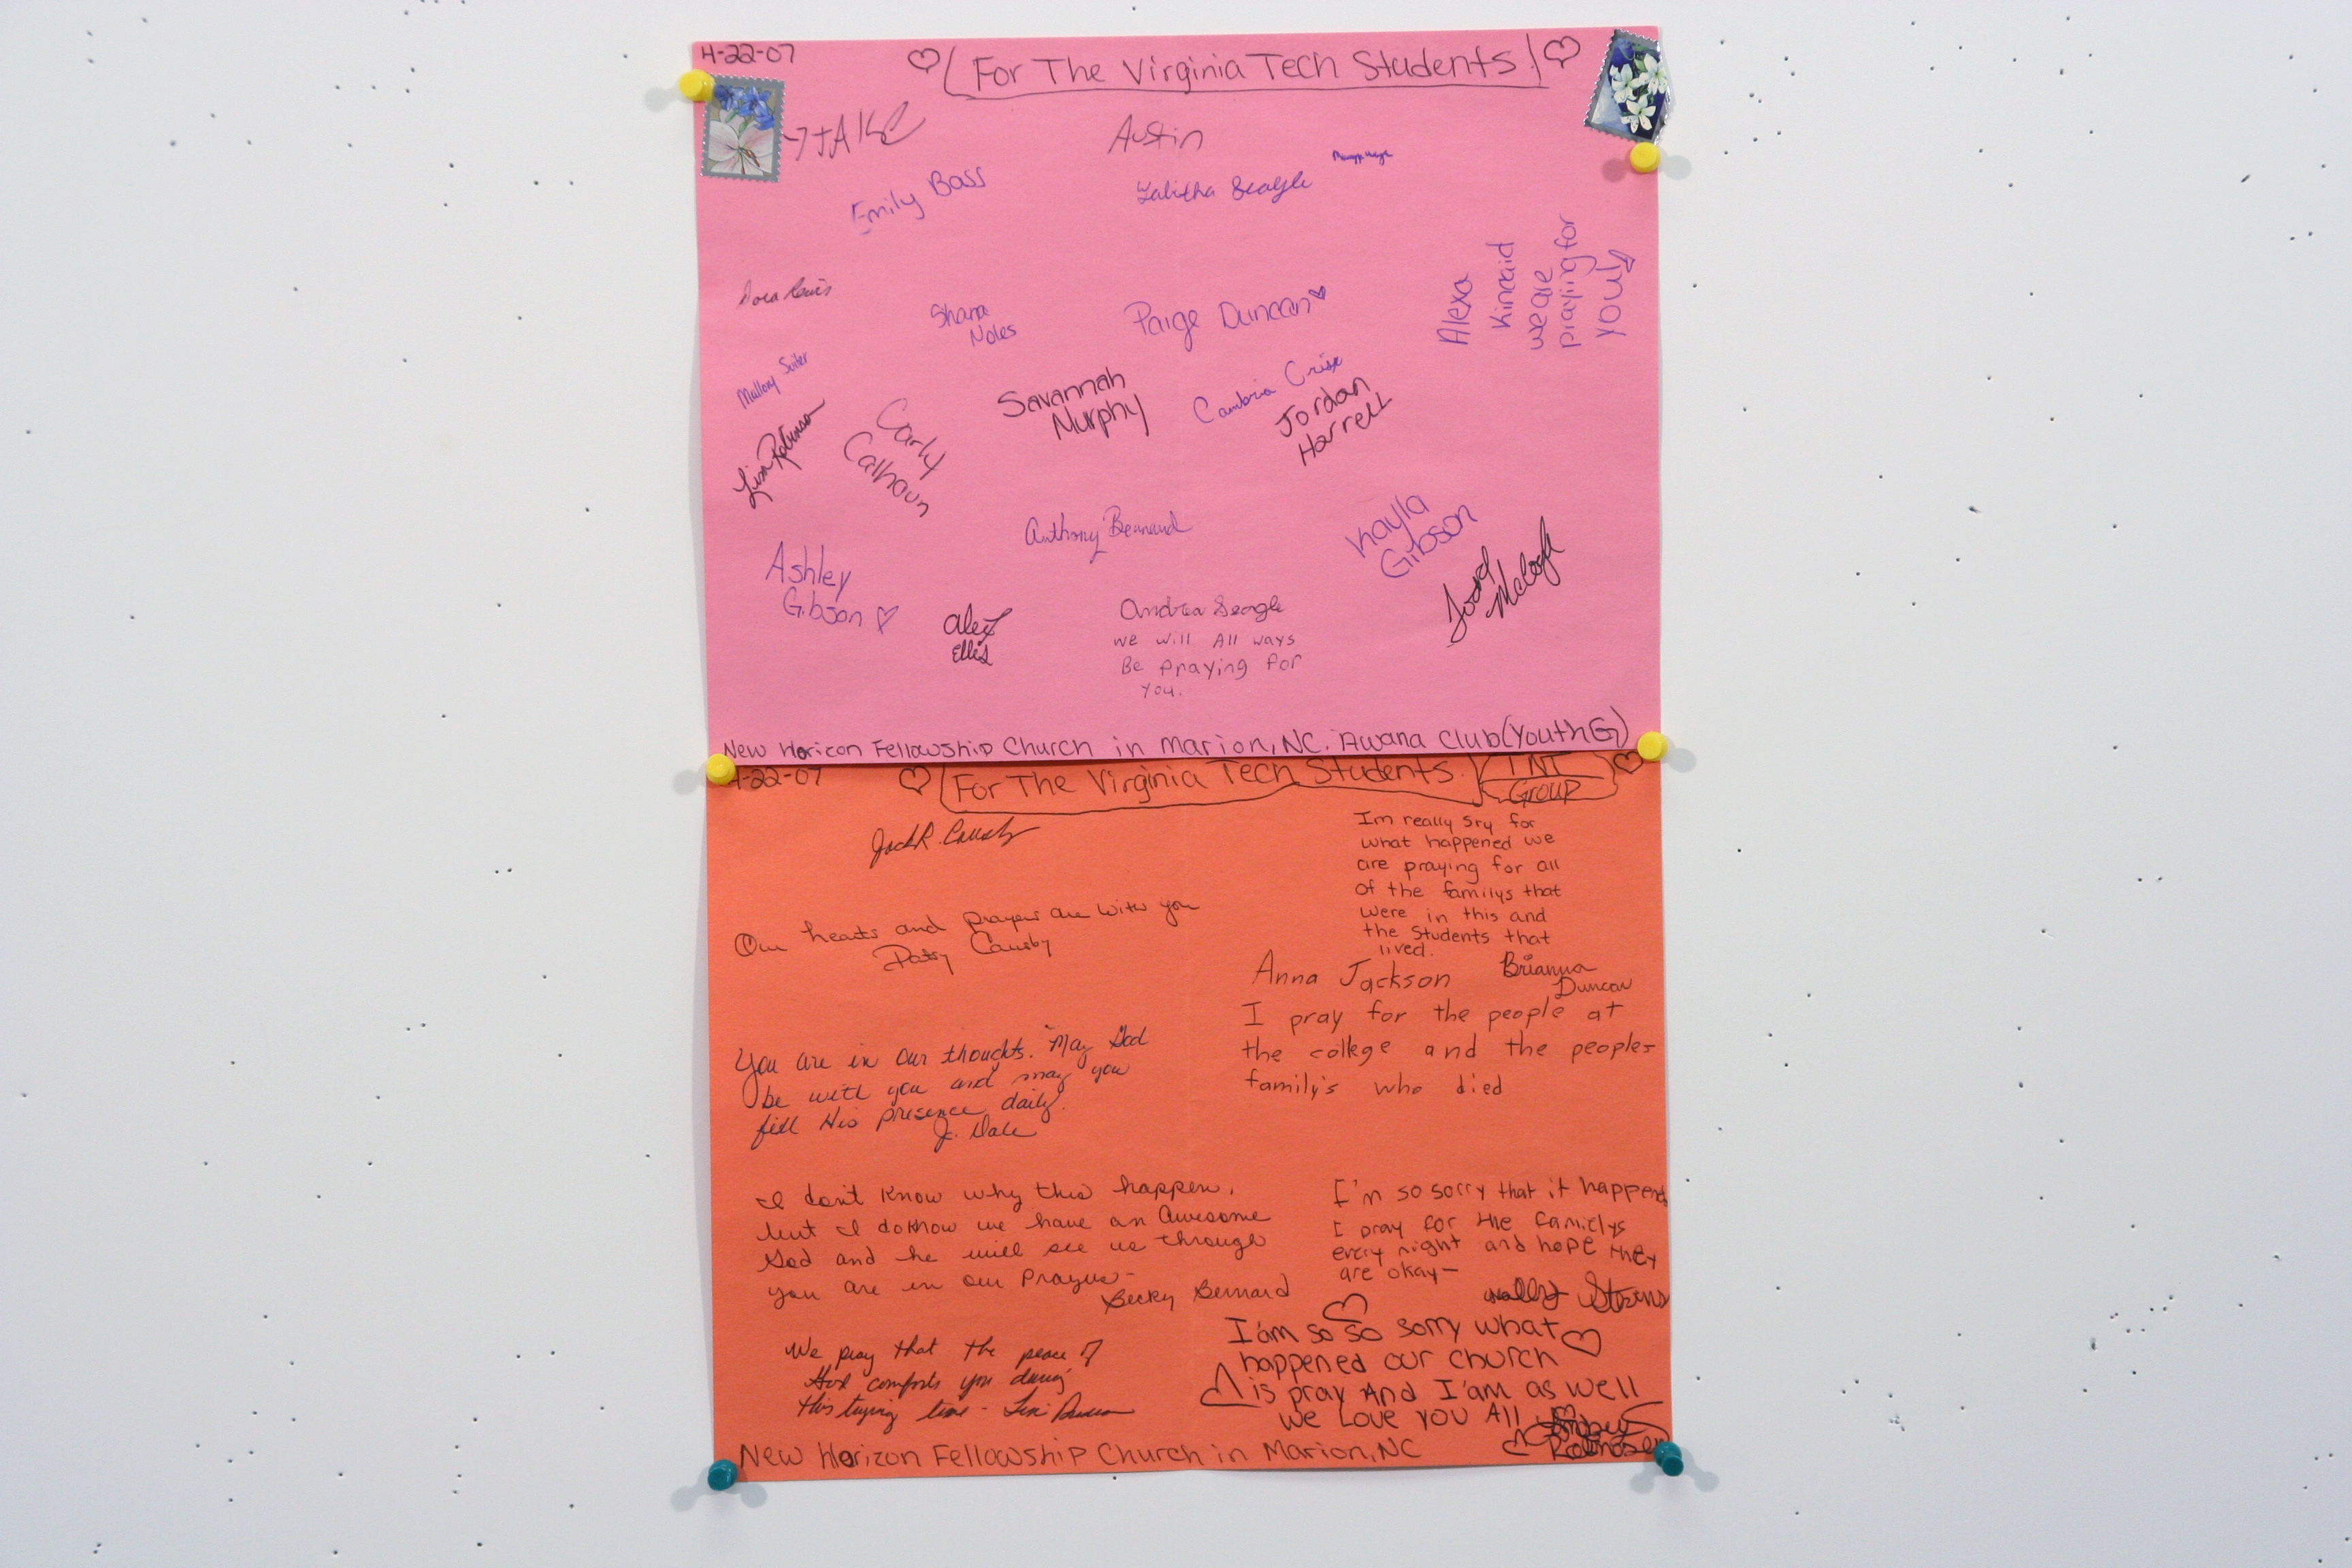 4-22-07
For The Virginia Tech Students
Austin
Emily Bass
Tabitha Seagle
Dora Lewis
Shana
Noles
Paige Duncan
Alexa
Kincaid
we are
praying for
you!
Mallory Suiter
Lisa Robinson
Carly
Calhoun
Savannah
Murphy
Cambria Crisp
Jordan
Harrell
Anthony Bernard
Kayla
Gibson
Ashley
Gibson
Alex
Ellis
Andrea Seagle
we will All ways
Be praying for
you.
New Horizon Fellowship Church in Marion, NC. Awana Club (Youth G)
4-22-07
For The Virginia Tech Students
TNT
Group
Jack R. Causby
Our hearts and prayers are with you
Patsy Causby
Im really sry for
what happened we
are praying for all
of the familys that
were in this and
the Students that
lived.
Brianna
Duncan
Anna Jackson
I pray for the people at
the college and the peoples
family's who died
You are in our thoughts. May God
be with you and may you
fill His presence daily.
J. Dale
I don't know why this happen,
but I do know we have an Awesome
God and he will see us through
you are in our prayers-
Becky Bernard
I'm so sorry that it happend
I pray for the familys
every night and hope they
are okay-
We pray that the peace of
God comforts you during
this trying time -
I'am so so sorry what
happened our church
is pray And I'am as well
we Love you All
New Horizon Fellowship Church in Marion, NC